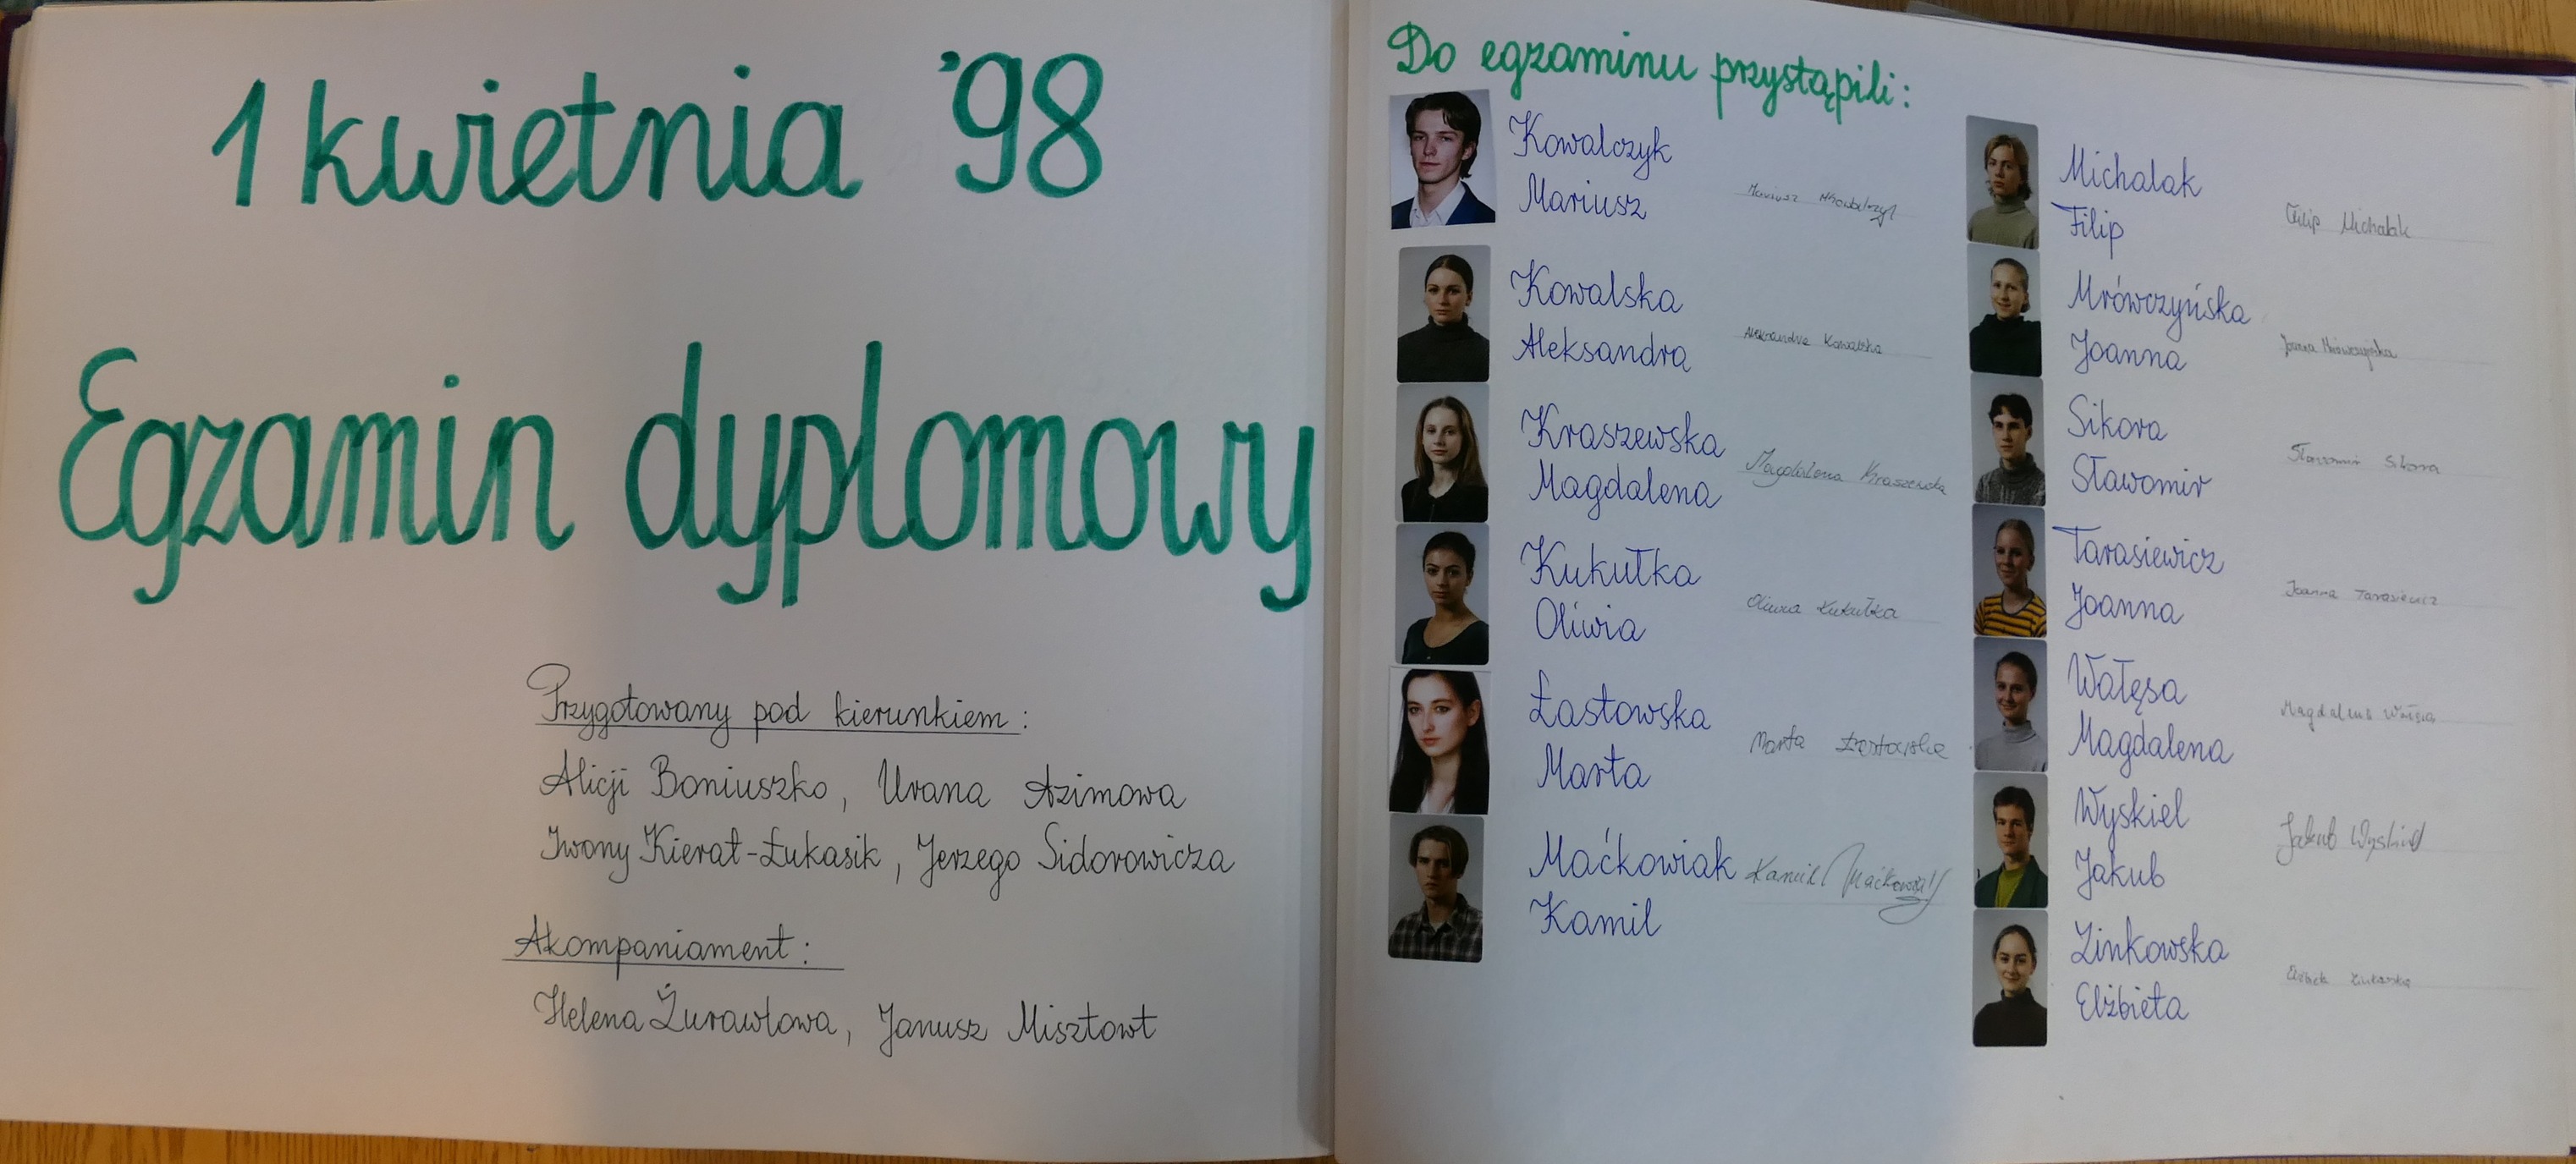 1 kwietnia '98
Egzamin dyplomowy
Przygotowany pod kierunkiem:
Alicji Boniuszko, Urana Azimowa
Iwony Kierat-Łukasik, Jerzego Sidorowicza
Akompaniament:
Helena Żurawłowa, Janusz Misztowt
Do egzaminu przystąpili:
Kowalczyk
Mariusz
Mariusz Kowalczyk
Kowalska
Aleksandra
Aleksandra Kowalska
Kraszewska
Magdalena
Magdalena Kraszewska
Kukułka
Oliwia
Oliwia Kukułka
Łastowska
Marta
Marta Łastowska
Maćkowiak
Kamil
Kamil Maćkowiak
Michalak
Filip
Filip Michalak
Mrówczyńska
Joanna
Joanna Mrówczyńska
Sikora
Sławomir
Sławomir Sikora
Tarasiewicz
Joanna
Joanna Tarasiewicz
Wałęsa
Magdalena
Magdalena Wałęsa
Wyskiel
Jakub
Jakub Wyskiel
Zinkowska
Elżbieta
Elżbieta